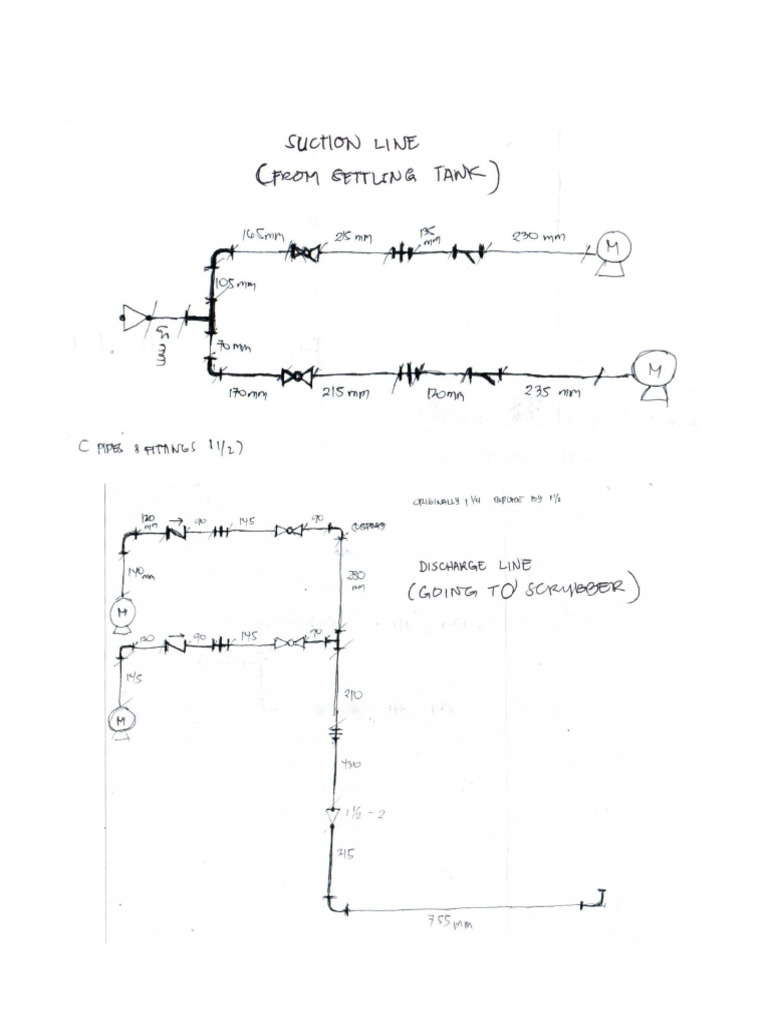 SUCTION LINE
(FROM SETTLING TANK)
165mm 215 mm 135 mm 230 mm
M
105mm
70mm
M
170mm 215mm 170mm 235 mm
( PIPES & FITTINGS 1 1/2)
ORIGINALLY 1 1/4 REPLACE BY 1 1/2
120 mm 90 145 90
DISCHARGE LINE
140 mm
280 mm
(GOING TO SCRUBBER)
M
120 90 145 70
145
210
M
430
1 1/2 - 2
315
755mm